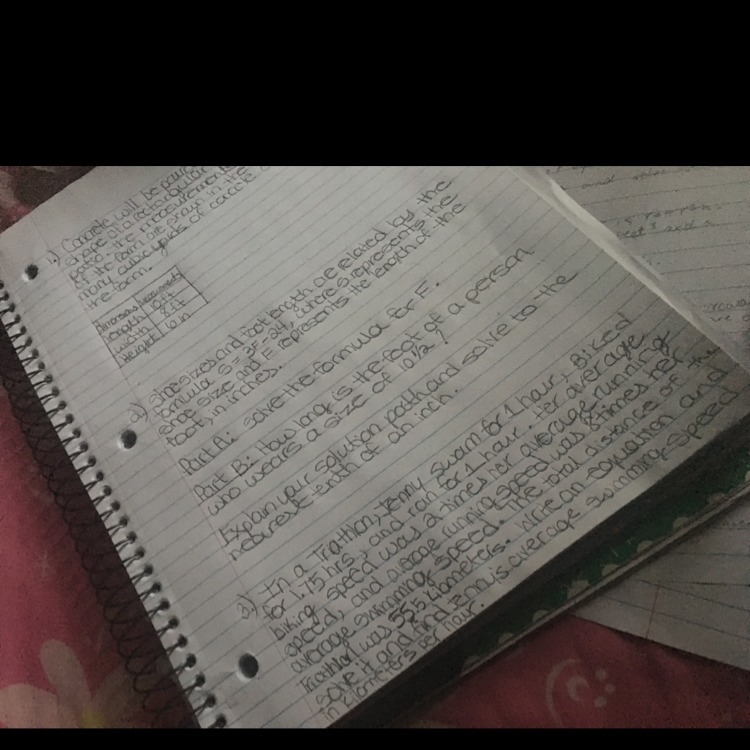 1) Concrete will be
shape of a rectangular
the measurements
of the form are shown in the
many cubic yards of concrete
the form.
Dimensions
length 10 ft
width 8 ft
Height 6 in
2) Shoe sizes and foot length are related by the
formula S = 3F - 24, where S represents the
shoe size and F represents the length of the
foot, in inches.
Part A: Solve the formula for F.
Part B: How long is the foot of a person
who wears a size of 10 1/2?
Explain your solution path and solve to the
nearest tenth of an inch.
3) In a Triathlon, Jenny swam for 1 hour, Biked
for 1.75 hrs, and ran for 1 hour. Her average
biking speed was 2 times her average running
speed, and average running speed was 8 times her
average swimming speed. The total distance of the
Triathlon was 55.5 kilometers. Write an equation and
solve it and find Jennys average swimming speed
in kilometers per hour.